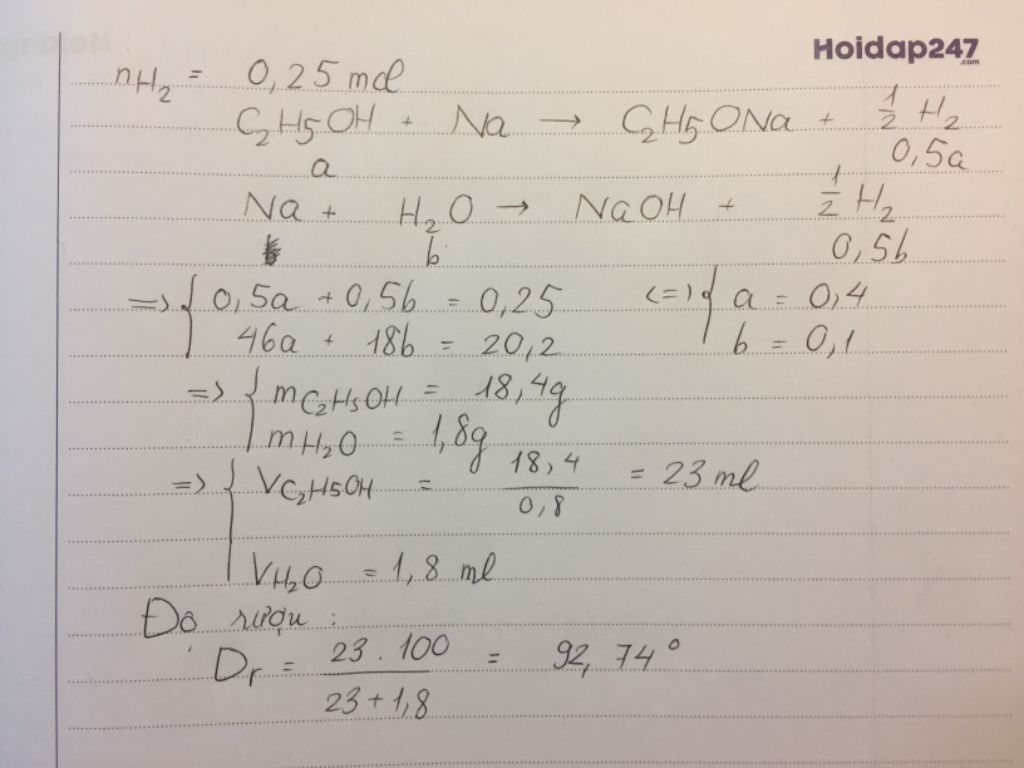 Hoidap247
.com
nH₂ = 0,25 mol
C₂H₅OH + Na → C₂H₅ONa + 1/2 H₂
a 0,5a
Na + H₂O → NaOH + 1/2 H₂
b 0,5b
=> { 0,5a + 0,5b = 0,25 <=> { a = 0,4
46a + 18b = 20,2 b = 0,1
=> { mC₂H₅OH = 18,4g
mH₂O = 1,8g
=> { VC₂H₅OH = 18,4 / 0,8 = 23 ml
VH₂O = 1,8 ml
Độ rượu :
Dr = 23 . 100 / 23 + 1,8 = 92,74°